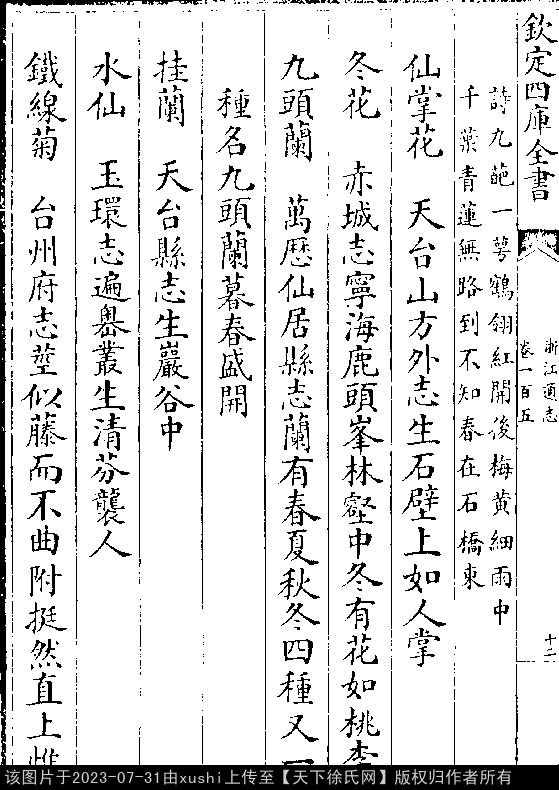 欽定四庫全書
浙江通志
卷一百五
十二
詩九葩一萼鶴翎紅開後梅黄細雨中
千葉青蓮無路到不知春在石橋東
仙掌花 天台山方外志生石壁上如人掌
冬花 赤城志寧海鹿頭峯林壑中冬有花如桃李
九頭蘭 萬厯仙居縣志蘭有春夏秋冬四種又一
種名九頭蘭暮春盛開
挂蘭 天台縣志生巖谷中
水仙 玉環志遍嶴叢生清芬襲人
鐵線菊 台州府志莖似藤而不曲附挺然直上
该图片于2023-07-31由xushi上传至【天下徐氏网】版权归作者所有